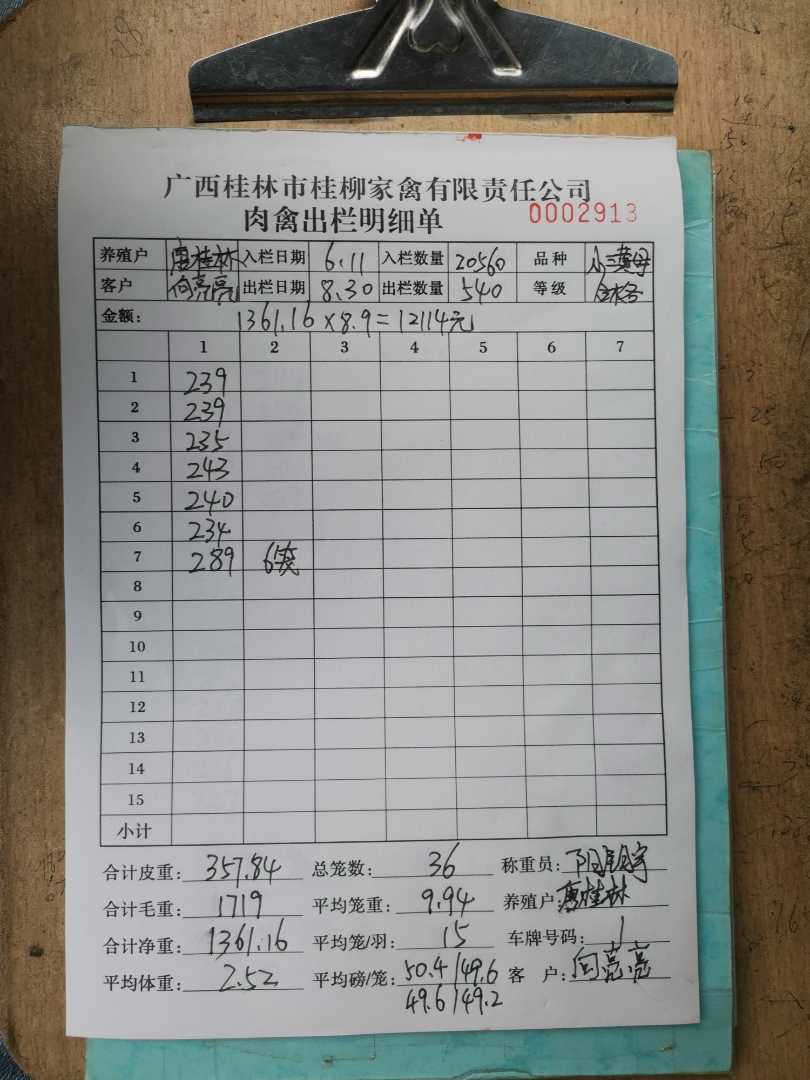 广西桂林市桂柳家禽有限责任公司
肉禽出栏明细单 0002913
养殖户 唐桂林 入栏日期 6.11 入栏数量 20560 品种 小三黄母
客户 向亮亮 出栏日期 8.30 出栏数量 540 等级 合格
金额: 1361.16×8.9=12114元
1 2 3 4 5 6 7
1 239
2 239
3 235
4 243
5 240
6 234
7 289 6笼
8
9
10
11
12
13
14
15
小计
合计皮重: 357.84 总笼数: 36 称重员:
合计毛重: 1719 平均笼重: 9.94 养殖户: 唐桂林
合计净重: 1361.16 平均笼/羽: 15 车牌号码: 1
平均体重: 2.52 平均磅/笼: 50.4/49.6 客 户: 向亮亮
49.6/49.2